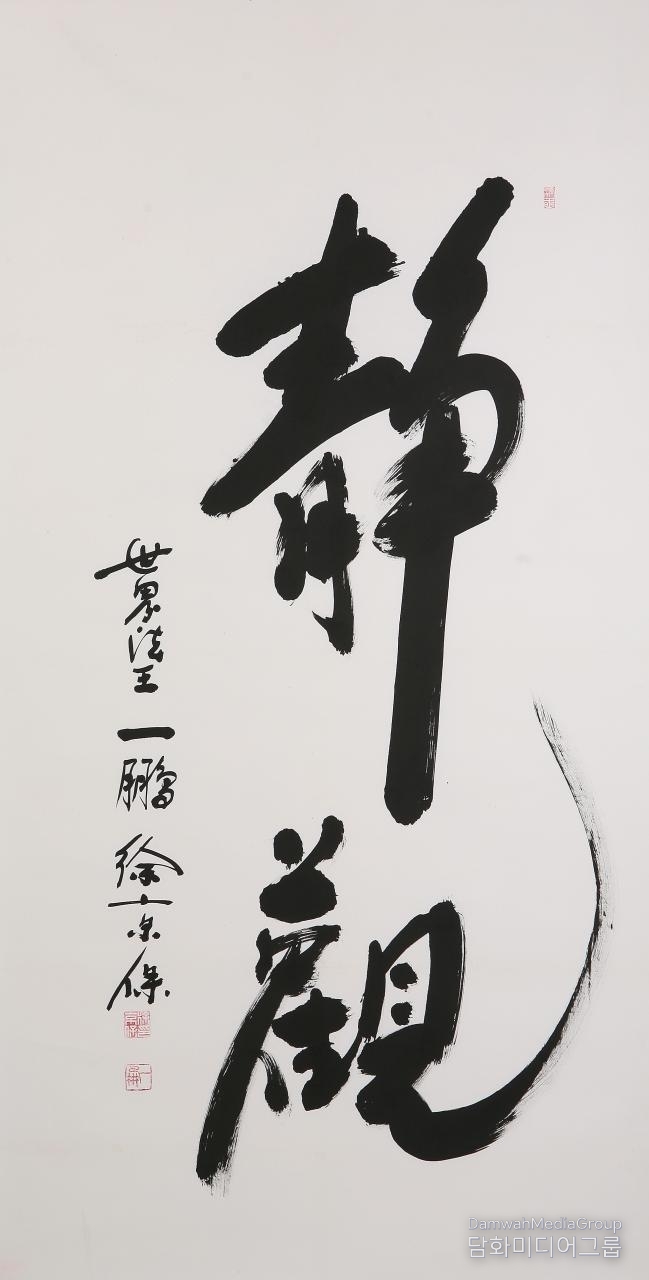 靜觀
世界法王 一鵬 徐京保
DamwahMediaGroup
담화미디어그룹